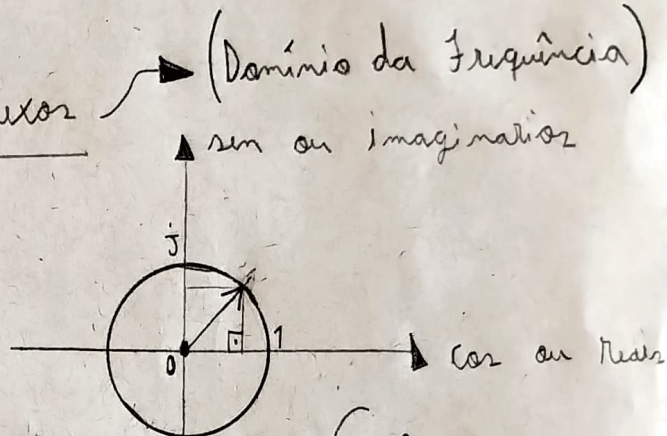 (Domínio da Frequência)
sen ou imaginarios
j
0
1
cos ou reais